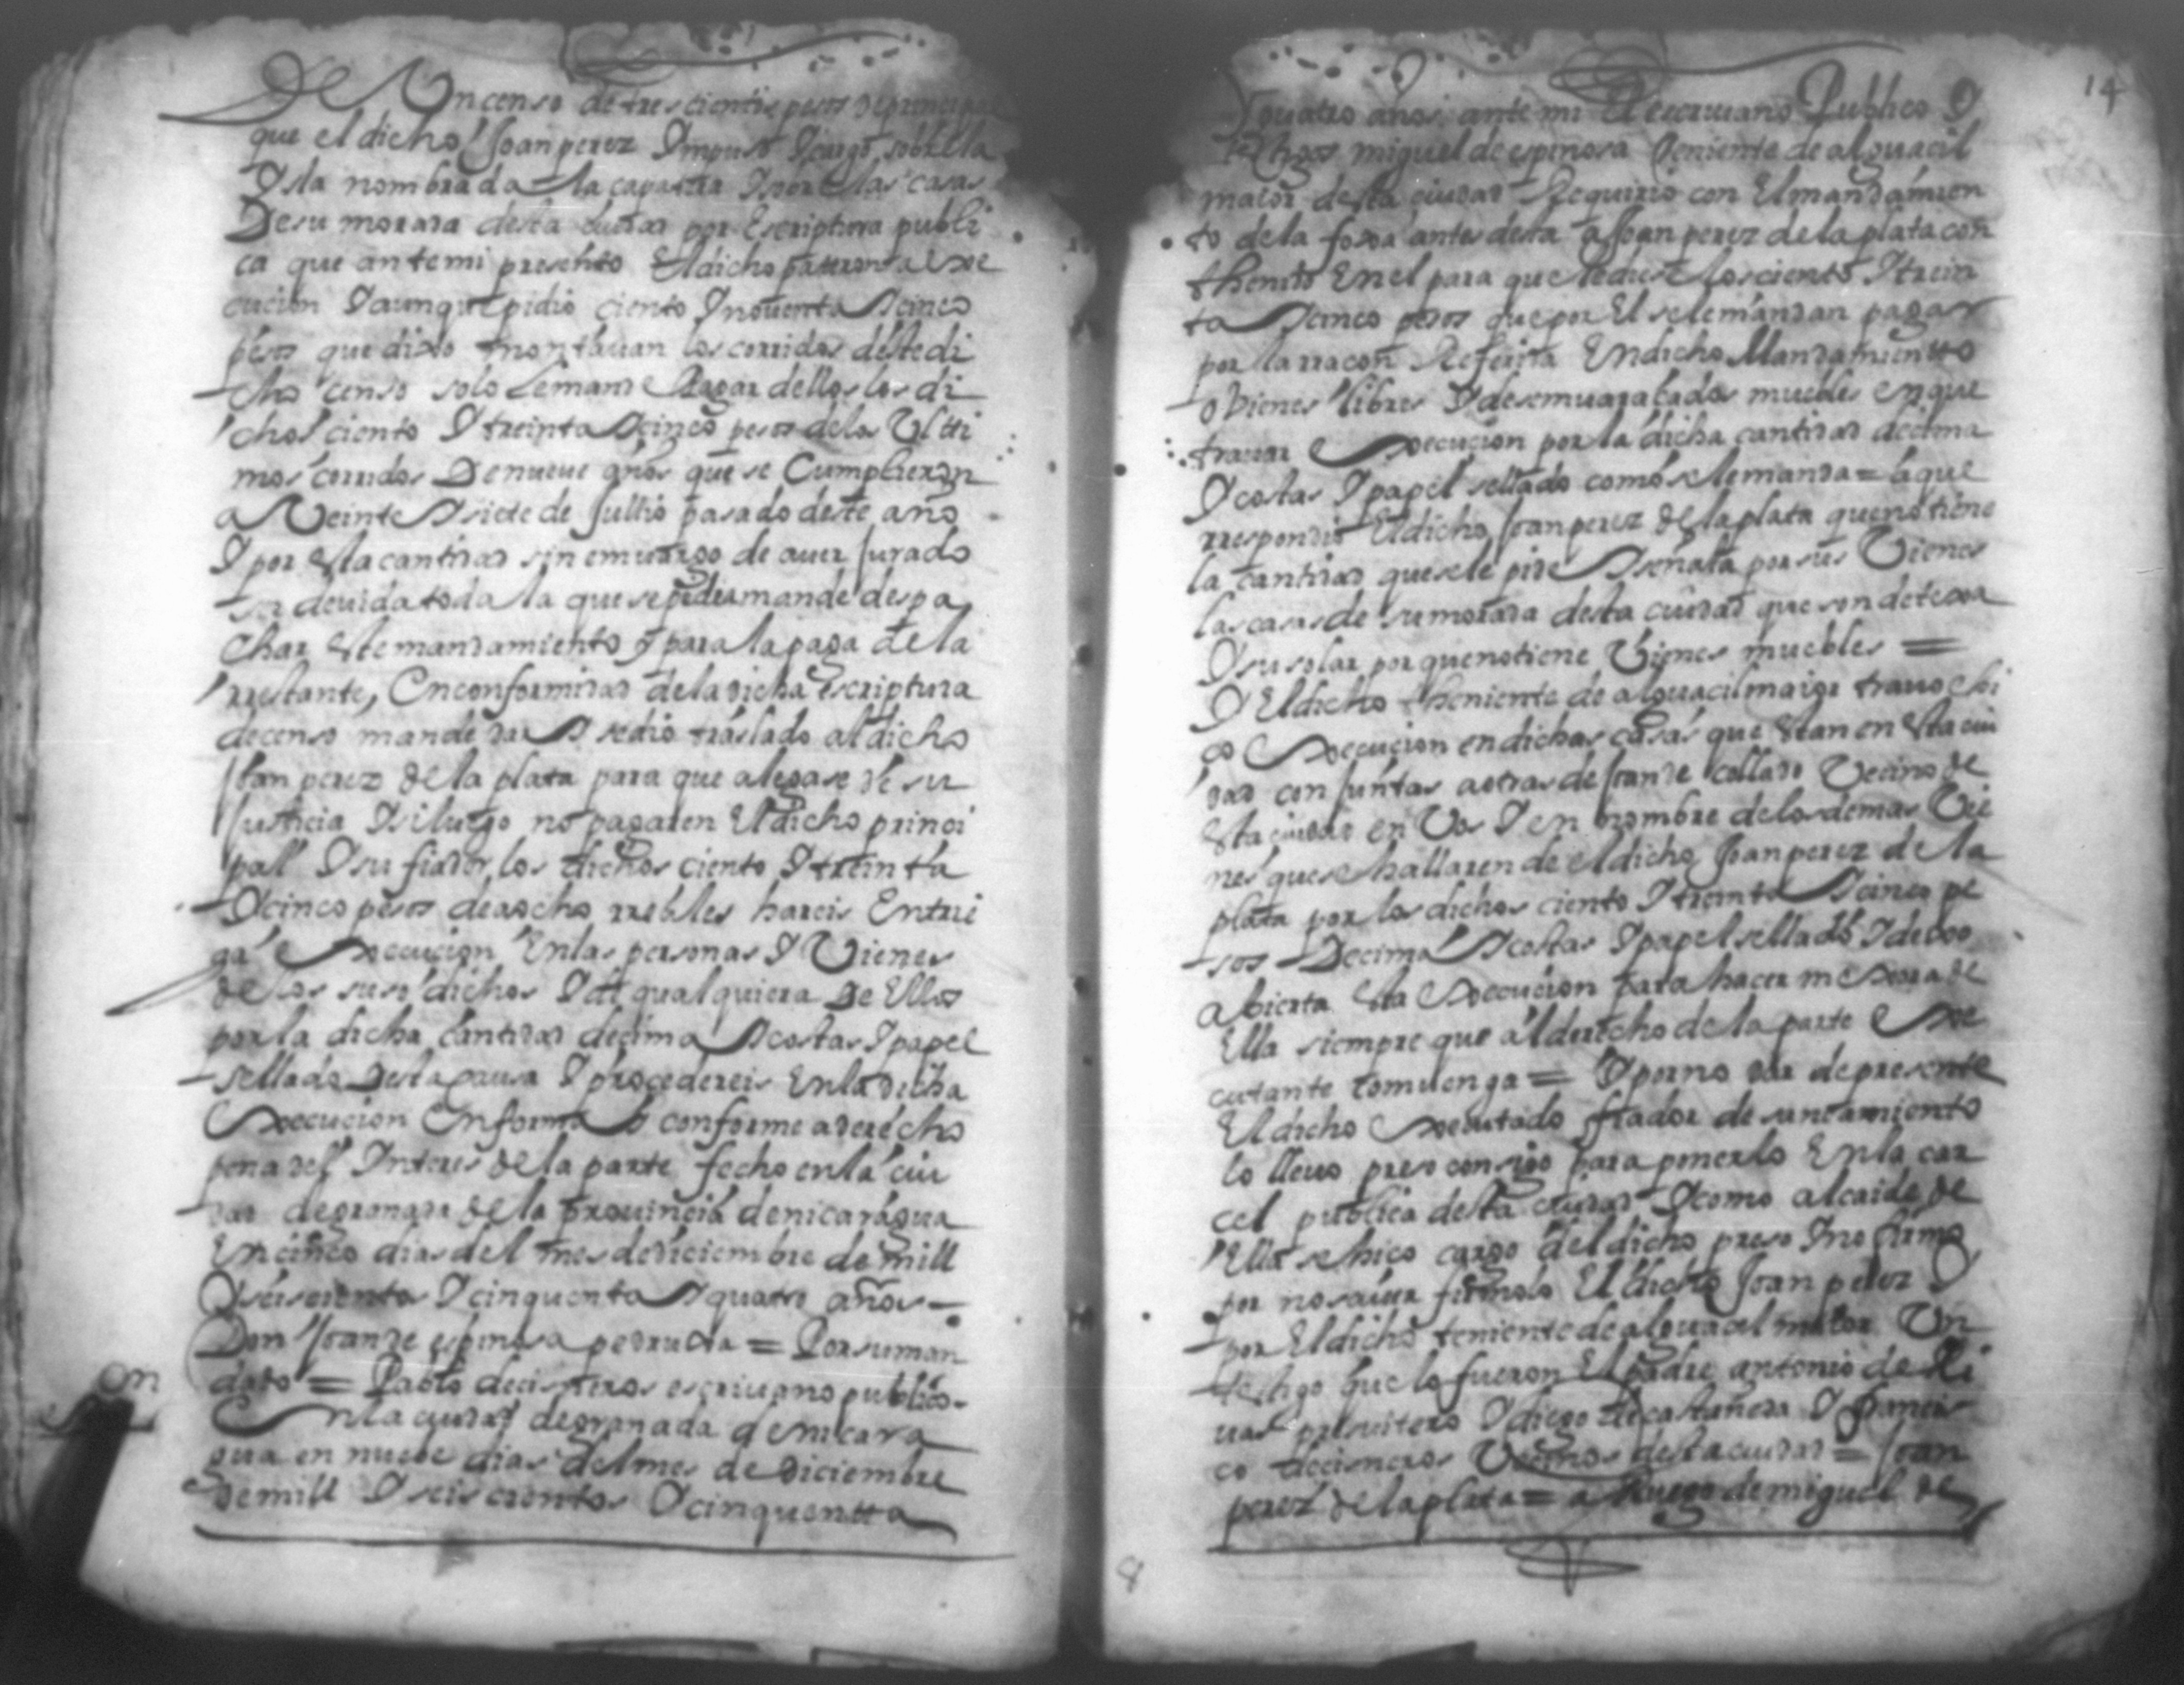 De Un censo de trescientos pesos de principal
que el dicho Joan perez Impuso I cargo sobre la
Isla nombrada la çapatera I sobre las casas
De su morada desta ciudad por Escriptura publi
ca que ante mi presento El dicho para esta exe
cucion I aunque pidio ciento I nouenta I cinco
pesos que dixo montauan los corridos deste di
cho censo solo le mande Pagar dellos los di
chos ciento I treinta I cinco pesos de los Ulti
mos corridos De nueue años que se Cumplieron
a Veinte I siete de Jullio pasado deste año
I por esta cantidad sin embargo de auer Jurado
ser deuida toda la que se pide mande despa
char este mandamiento y para la paga de la
rrestante, En conformidad de la dicha escriptura
de censo mande dar I se dio traslado al dicho
Joan perez de la plata para que alegase de su
Justicia I si luego no pagaren El dicho princi
pal I su fiador, los dichos ciento I treinta
I cinco pesos de a ocho rreales hareis Entre
ga Execucion En las personas I Vienes
de los suso dichos I de qualquiera De Ellos
por la dicha cantidad decima I costas I papel
sellado Desta causa I procedereis En la dicha
Execucion En forma I conforme a derecho
pena del Interes de la parte fecho en la ciu
dad de granada de la prouincia de nicaragua
En cinco dias del mes de diciembre de mill
I seiscientos I cinquenta I quatro años =
Don Joan de espinosa pedruxa = Por su man
dado = Pablo de cisneros escriuano publico.
En la ciudad de granada de nicara
gua en nueue dias del mes de Diciembre
de mill I seiscientos I cinquentta
14
I quatro años ante mi El escriuano Publico I
testigos miguel de espinosa teniente de alguacil
maior desta ciudad Requirio con El mandamien
to de la foxa antes desta a Joan perez de la plata con
thenido En el para que le diese los ciento I trein
ta I cinco pesos que por El se le mandan pagar
por la rraçon Referida En dicho Mandamientto
o Vienes libres I desembaraçados muebles en que
trauar Execucion por la dicha cantidad decima
I costas I papel sellado como se le manda = a que
rrespondio El dicho Joan perez de la plata que no tiene
la cantidad que se le pide I señala por sus Vienes
las casas de su morada desta ciudad que son de texa
I su solar porque no tiene Vienes muebles =
I El dicho theniente de alguacil maior trauo e hi
ço Execucion en dichas casas que estan en esta ciu
dad con Juntas a otras de Joan de collado Vecino de
esta ciudad en Vos I en nombre de los demas Vie
nes que se hallaren de el dicho Joan perez de la
plata por los dichos ciento I treinta I cinco pe
sos Decima I costas I papel sellado I dexo
abierta esta Execucion para hacer mexora de
Ella siempre que al derecho de la parte Exe
cutante comuenga = I por no dar de presente
El dicho Executado fiador de saneamiento
lo lleuo preso consigo para ponerlo En la car
cel publica desta ciudad I como alcaide de
Ella se hiço cargo del dicho preso I no firmo
por no sauer firmolo El dicho Joan perez I
por El dicho teniente de alguacil maior Un
testigo que lo fueron El padre antonio de Ri
uas presuitero I diego de castañeda I francis
co de cisneros Vecinos desta ciudad = Joan
perez de la plata = a Ruego de miguel de